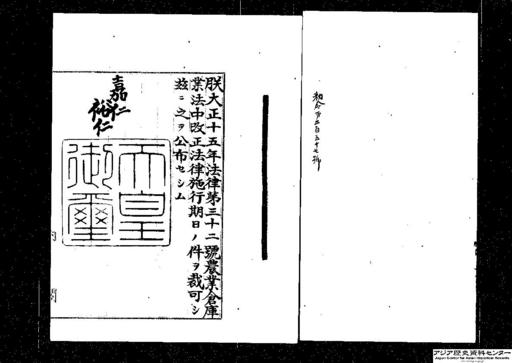 勅令第二百五十七號
朕大正十五年法律第三十二號農業倉庫
業法中改正法律施行期日ノ件ヲ裁可シ
茲ニ之ヲ公布セシム
嘉仁
裕仁
天皇
御璽
内閣
アジア歴史資料センター
Japan Center for Asian Historical Records